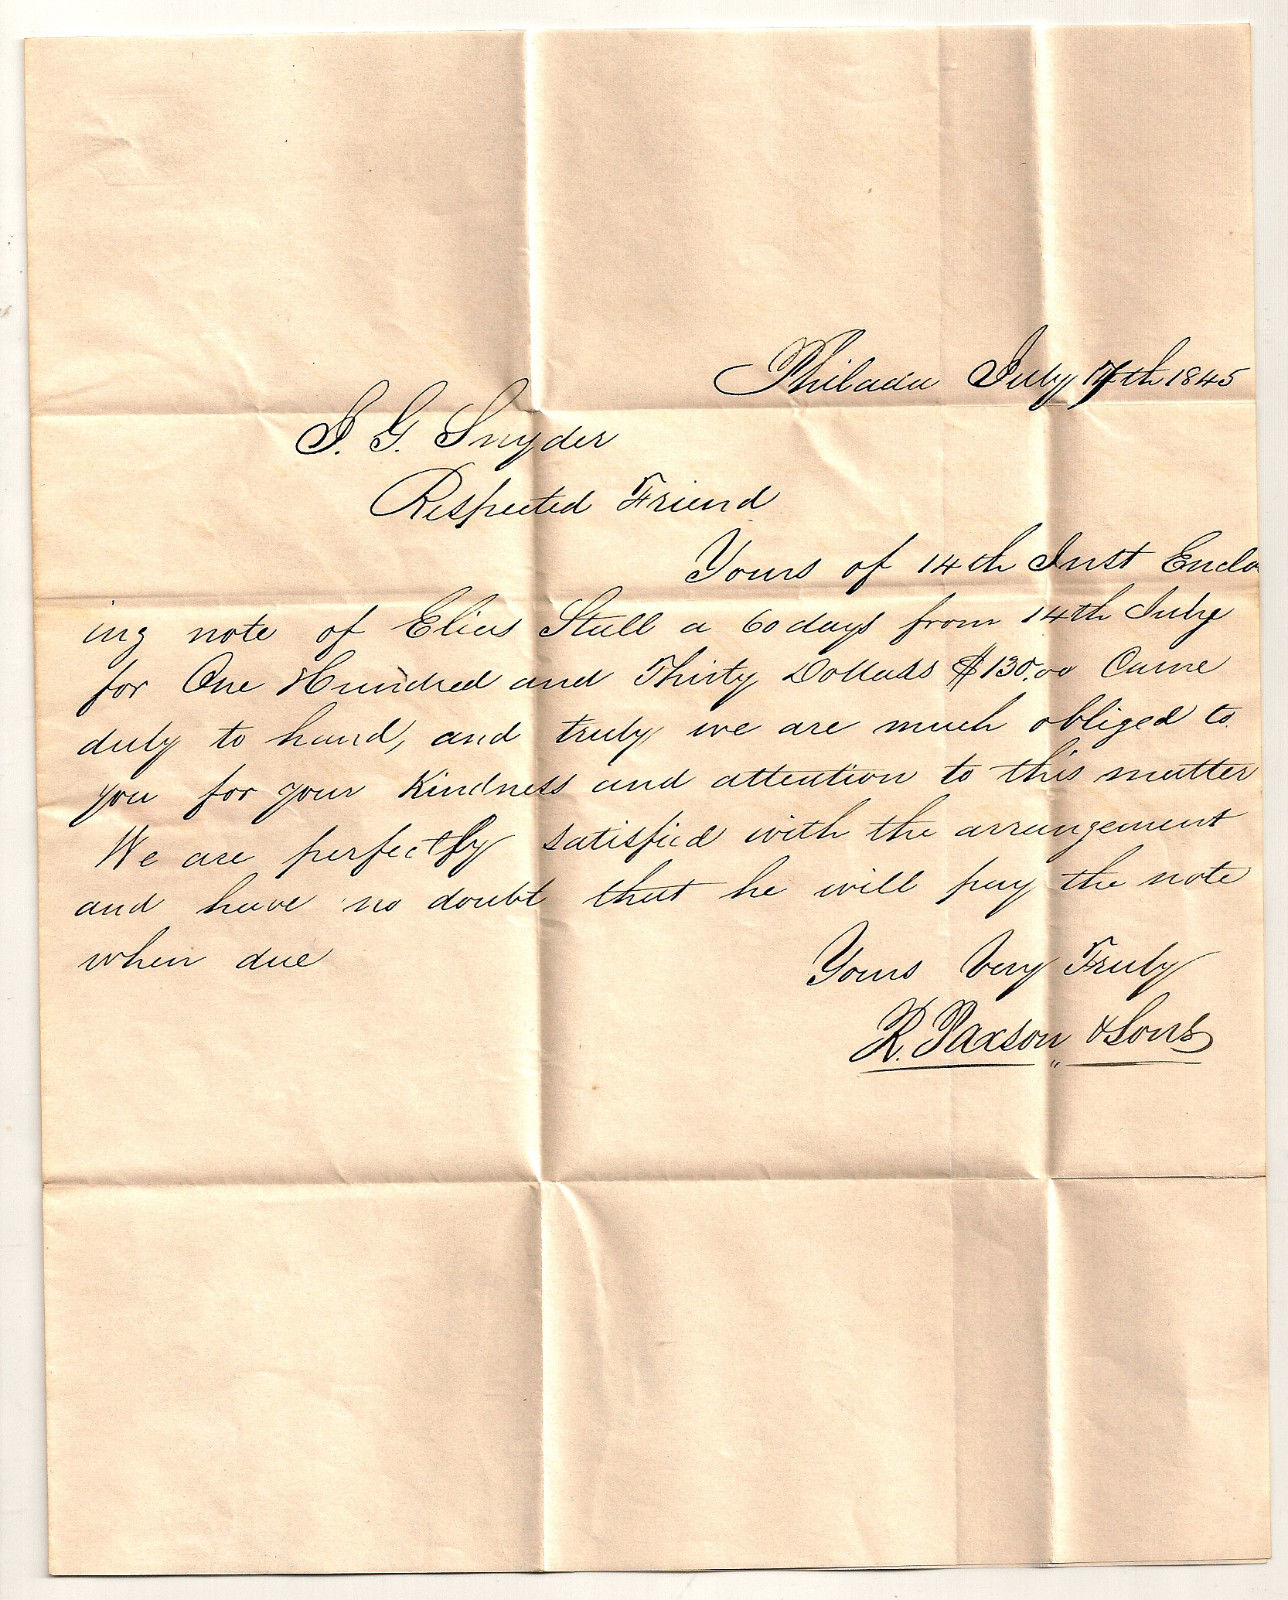 Philada July 17th 1845
J. G. Snyder
Respected Friend
Yours of 14th Inst Enclo
ing note of Elias Stull a 60 days from 14th July
for One Hundred and Thirty Dollars $130.00 Came
duly to hand, and truly we are much obliged to
you for your Kindness and attention to this matter
We are perfectly satisfied with the arrangement
and have no doubt that he will pay the note
when due
Yours Very Truly
R. Paxson & Sons